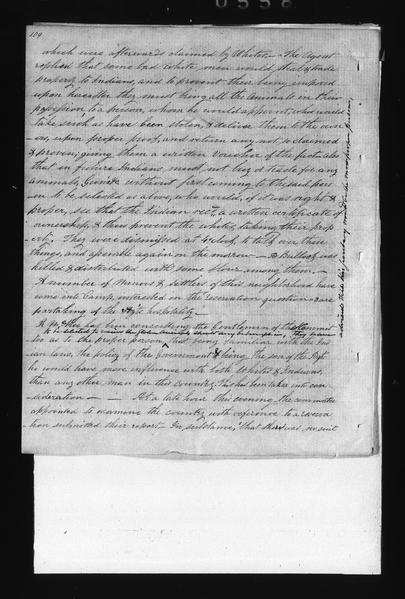 0558
109
which were afterwards claimed by Whites. - The Agent
replied that some bad white men would steal & trade
property to Indians, and to prevent their being imposed
upon hereafter they must bring all the animals in their
possession to a person, whom he would appoint, who would
take such as have been stolen, & deliver them to the own-
ers, upon proper proof, and return any not so claimed
& proven, giving them a written voucher of the facts, also
that in future Indians must not buy or trade for any
animals, Guns &c without first coming to the said pers-
on to be selected as above, who would, if it was right &
proper, see that the Indian rec'd, a written certificate of
ownership, & thus prevent the whites, taking their prop
-erty. They were dismissed at 4 o'clock, to talk over these
things, and assemble again on the morrow - A Bullock was
killed & distributed with some flour among them. -
A number of Miners & settlers of this neighborhood have
come into Camp, interested in the reservation question & are
partakeing of the Agt's hospitality -
has been consulting the Gentlemen of the Commit-
tee as to the proper person that being familiar with the Ind-
ian laws, the policy of the Government & being the son of the Agt.
he would have more influence with both Whites & Indians,
than any other man in this Country. This has been taken into con-
sideration - - At a late hour this evening, the committee
appointed to examine the country with reference to a reserva-
tion submitted their report - In substance, "that there was no suit